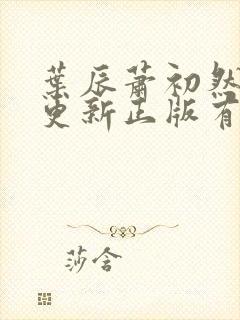 葉辰蕭初然
更新正版有
莎含